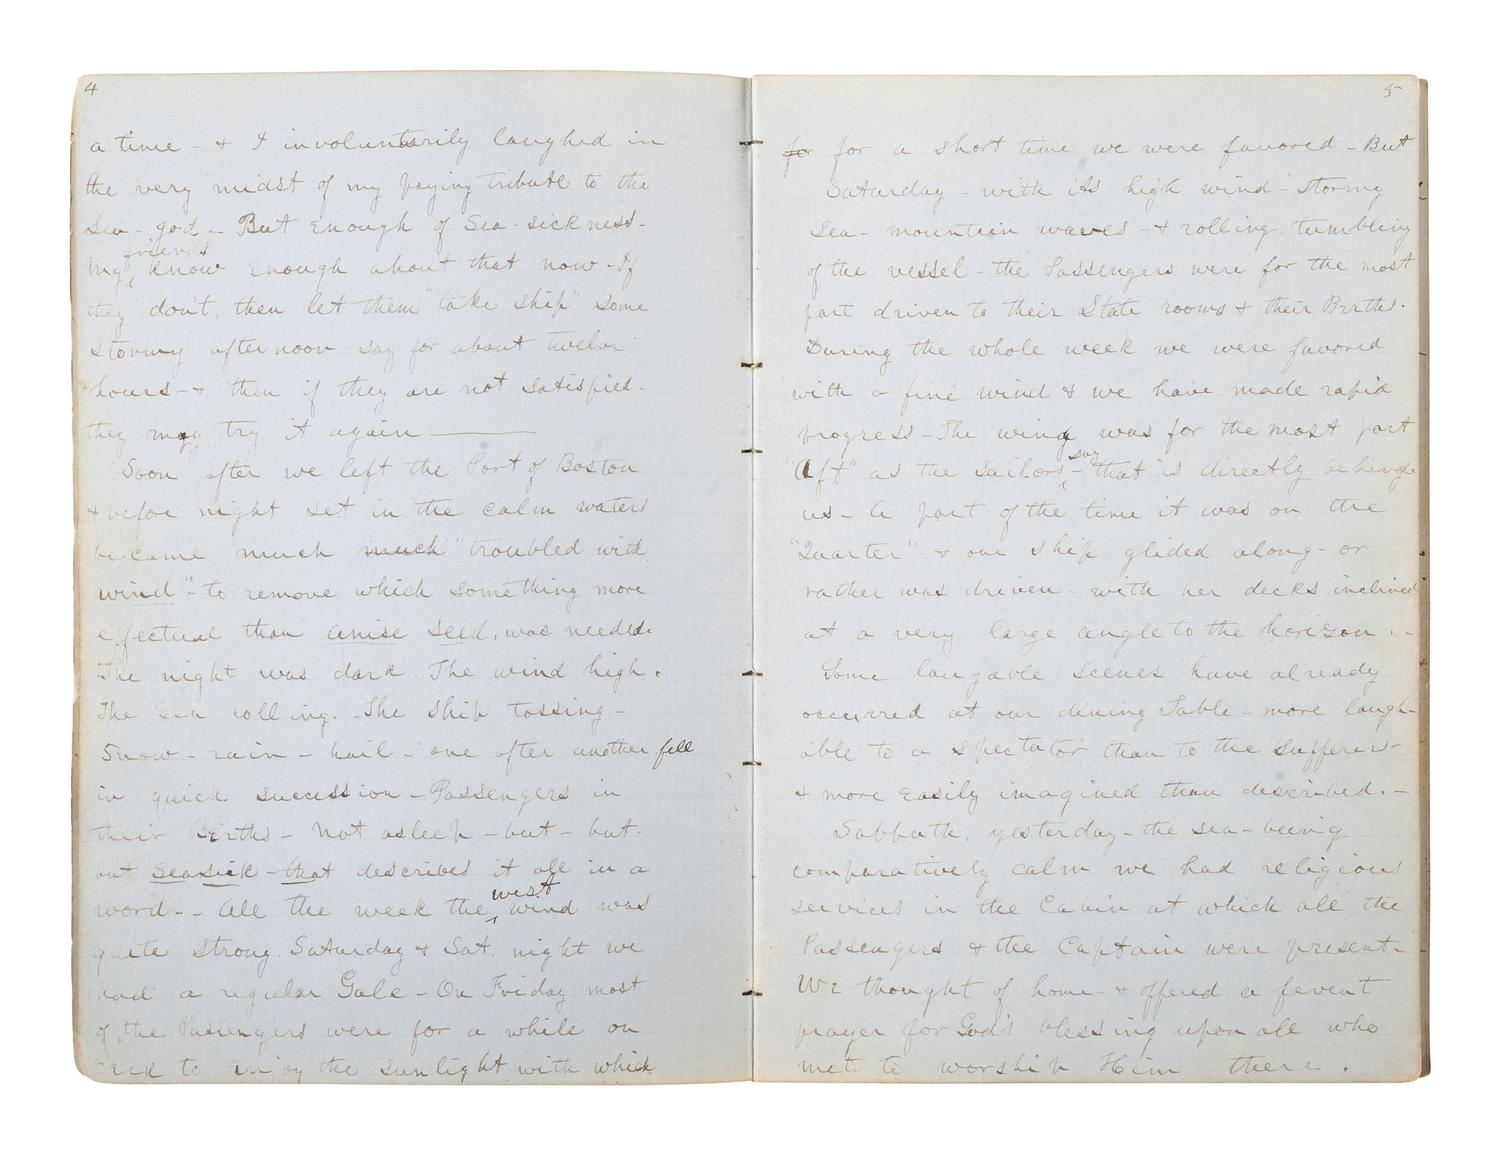 4
a time - & I involuntarily laughed in
the very midst of my paying tribute to the
Sea-god - But Enough of Sea-sickness-
friends
My, know Enough about that now - If
they don't, then let them "take ship" some
Stormy afternoon - say for about twelve
hours - & then if they are not satisfied -
they may try it again ———
Soon after we left the Port of Boston
& before night set in the calm waters
became much much "troubled with
wind" - to remove which something more
effectual than anise seed, was needed.
The night was dark. The wind high.
The Sea rolling. The Ship tossing -
Snow - rain - hail - one after another fell
in quick succession - Passengers in
their Berths - Not asleep - but - but
but Seasick - that describes it all in a
west
word - - All the week the wind was
quite strong. Saturday & Sat. night we
had a regular Gale - On Friday most
of the Passengers were for a while on
Deck to enjoy the sunlight with which
5
for for a short time we were favored - But
Saturday - with its high wind - stormy
Sea - mountain waves - & rolling, tumbling
of the vessel - the Passengers were for the most
part driven to their State rooms & their Berths.
During the whole week we were favored
with a fine wind & we have made rapid
progress - The wind was for the most part
say
"Aft" as the sailors - that is directly behind
us - A part of the time it was on the
"Quarter" - & our ship glided along - or
rather was driven - with her decks inclined
at a very large angle to the horizon. -
Some laugable scenes have already
occurred at our dining Table - more laugh-
able to a spectator than to the sufferer -
& more easily imagined than described. -
Sabbath, yesterday - the sea - being
comparatively calm we had religious
services in the Cabin at which all the
Passengers & the Captain were present -
We thought of home - & offered a fevent
prayer for God's blessing upon all who
met to worship Him there.